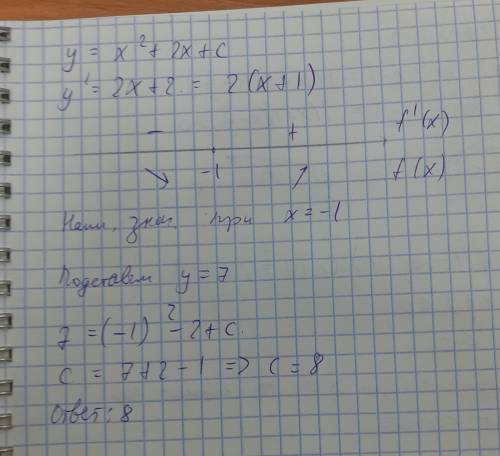 y = x² + 2x + c
y' = 2x + 2 = 2(x+1)
- + f'(x)
↘ -1 ↗ f(x)
Наим. знач. при x = -1
Подставим y = 7
7 = (-1)² - 2 + c.
c = 7 + 2 - 1 => c = 8
Ответ: 8